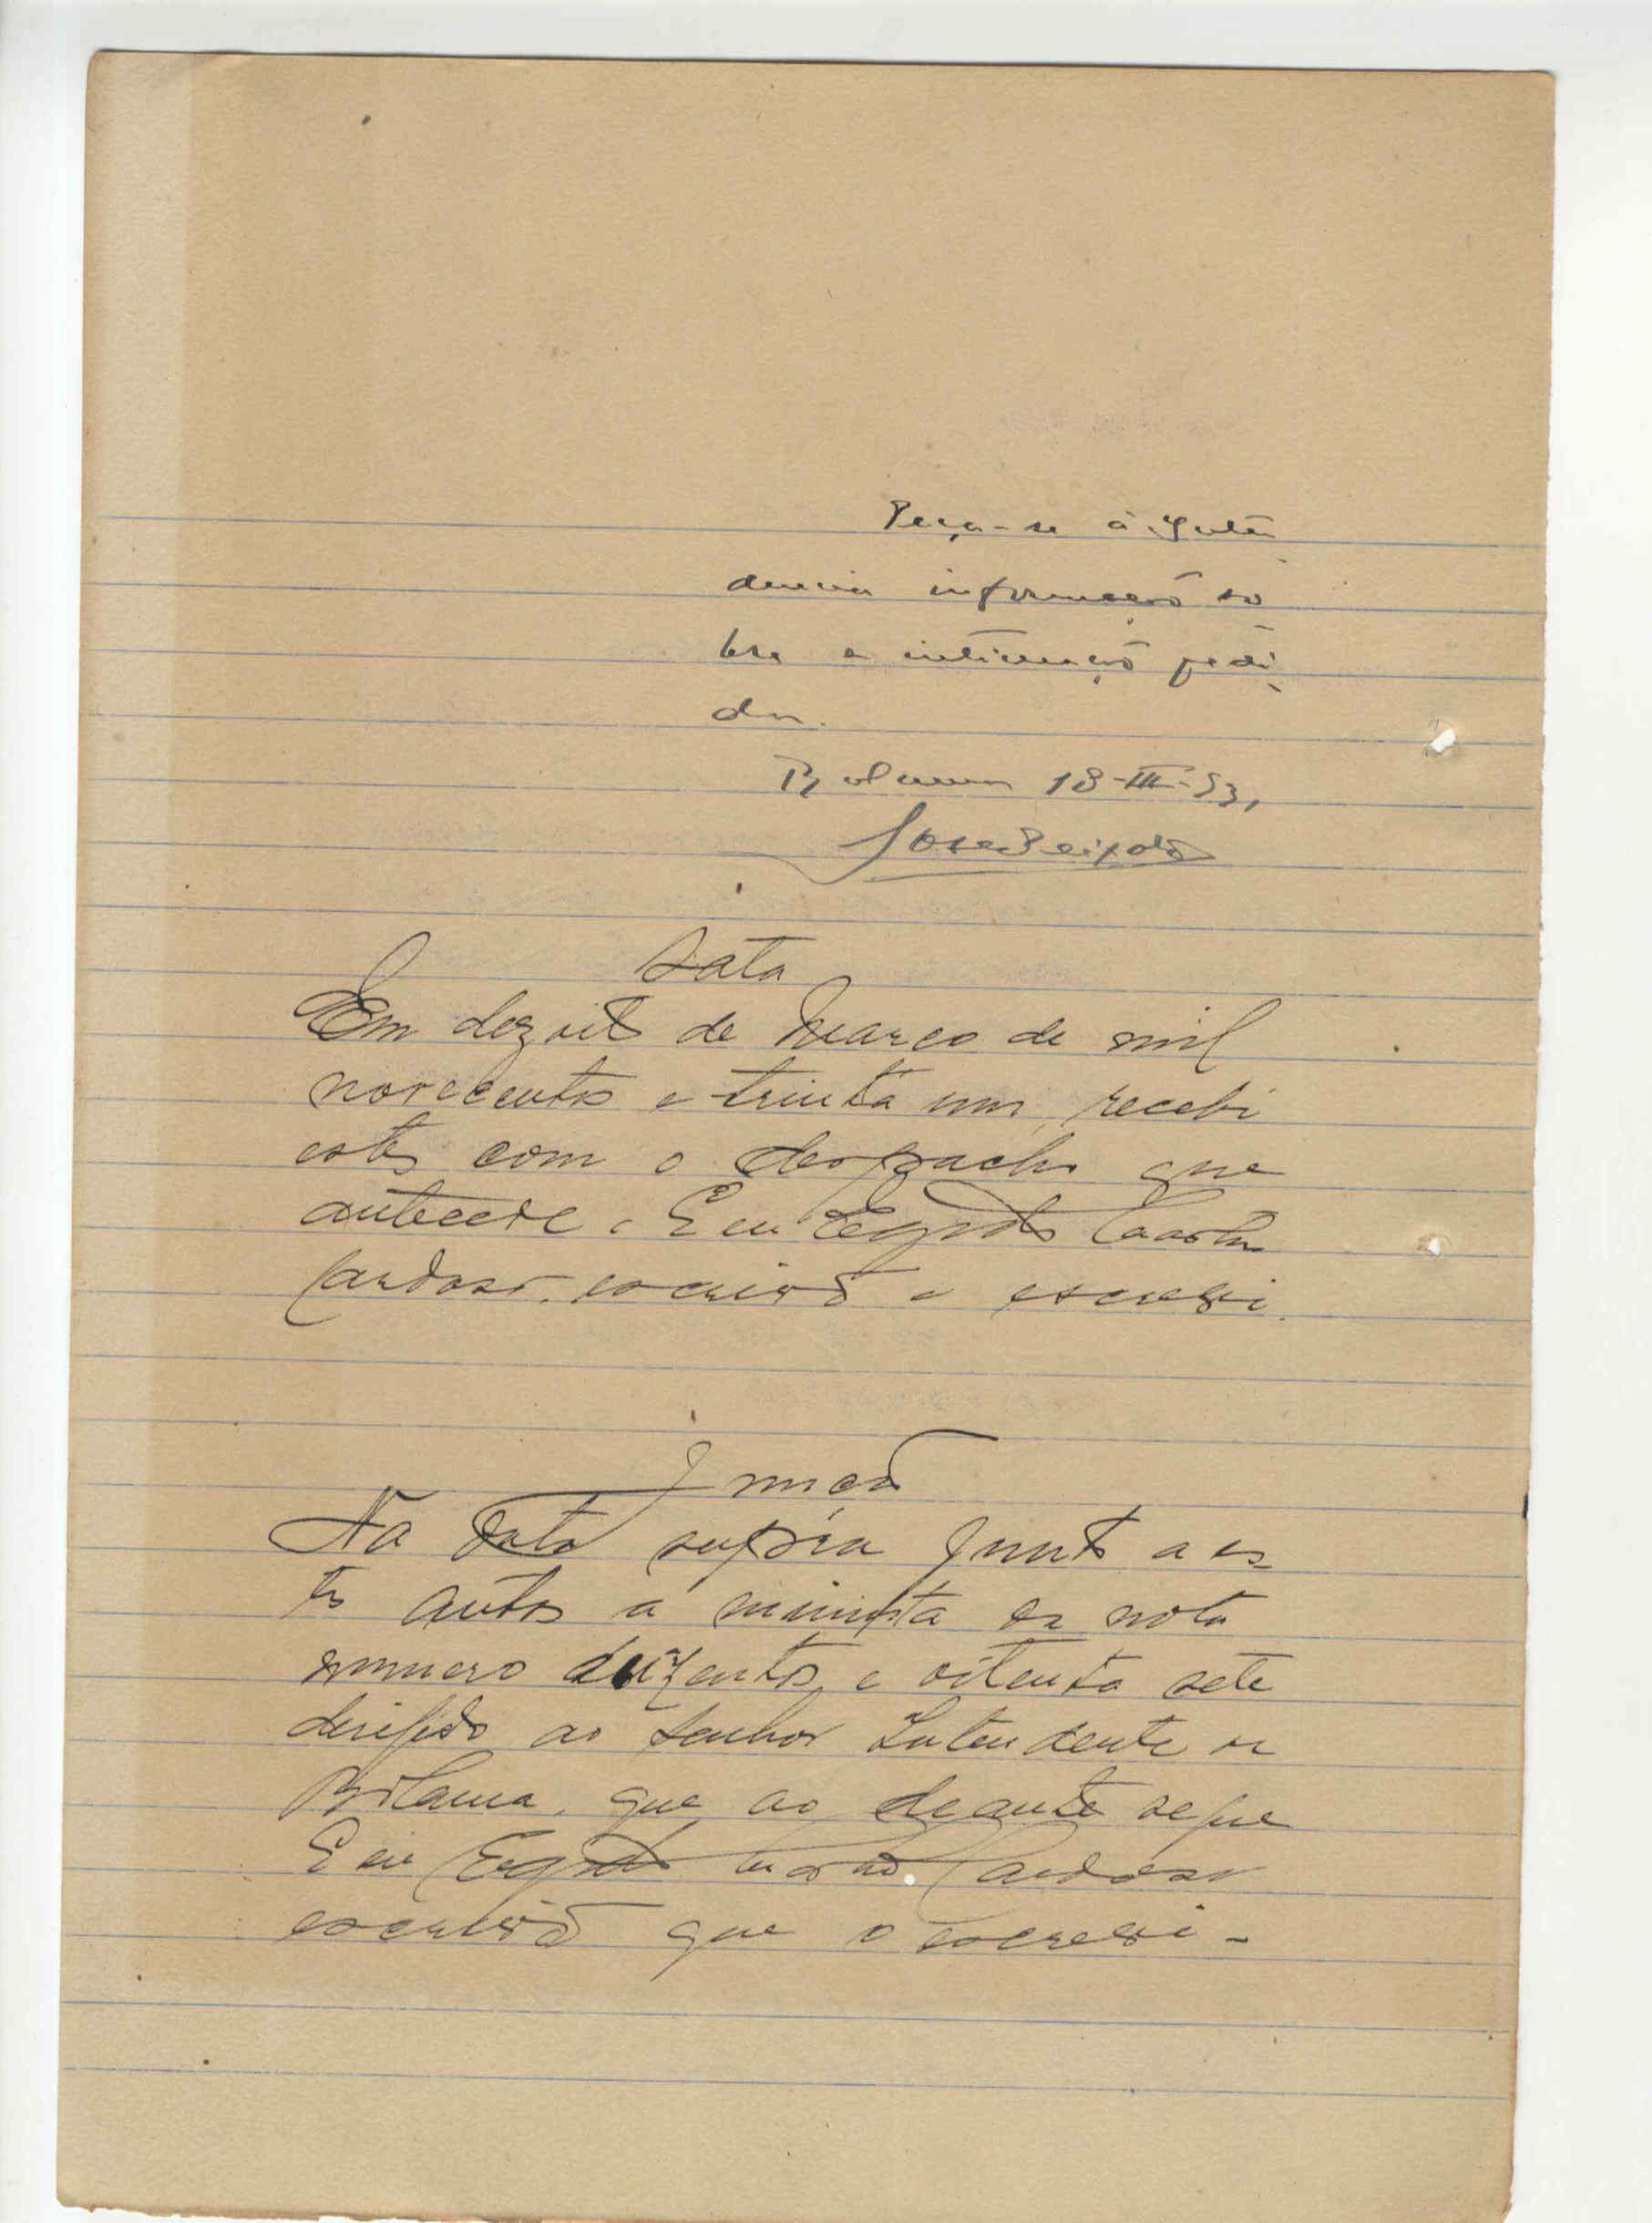 Peça-se á Inten
dencia informação so
bre a intimação pedi
da.
Bolama 18-III-931
José Peixoto
Data
Em dezoito de Março de mil
novecentos e trinta um, recebi
estes com o despacho que
antecede. E eu Egidio
Cardoso, escrivão o escrevi.
Junção
Na data supra junto a es
tes autos a minuta da nota
numero duzentos e oitenta sete
dirigido ao Senhor Intendente de
Bolama, que ao deante segue
E eu Egidio Cardoso
escrivão que o escrevi -